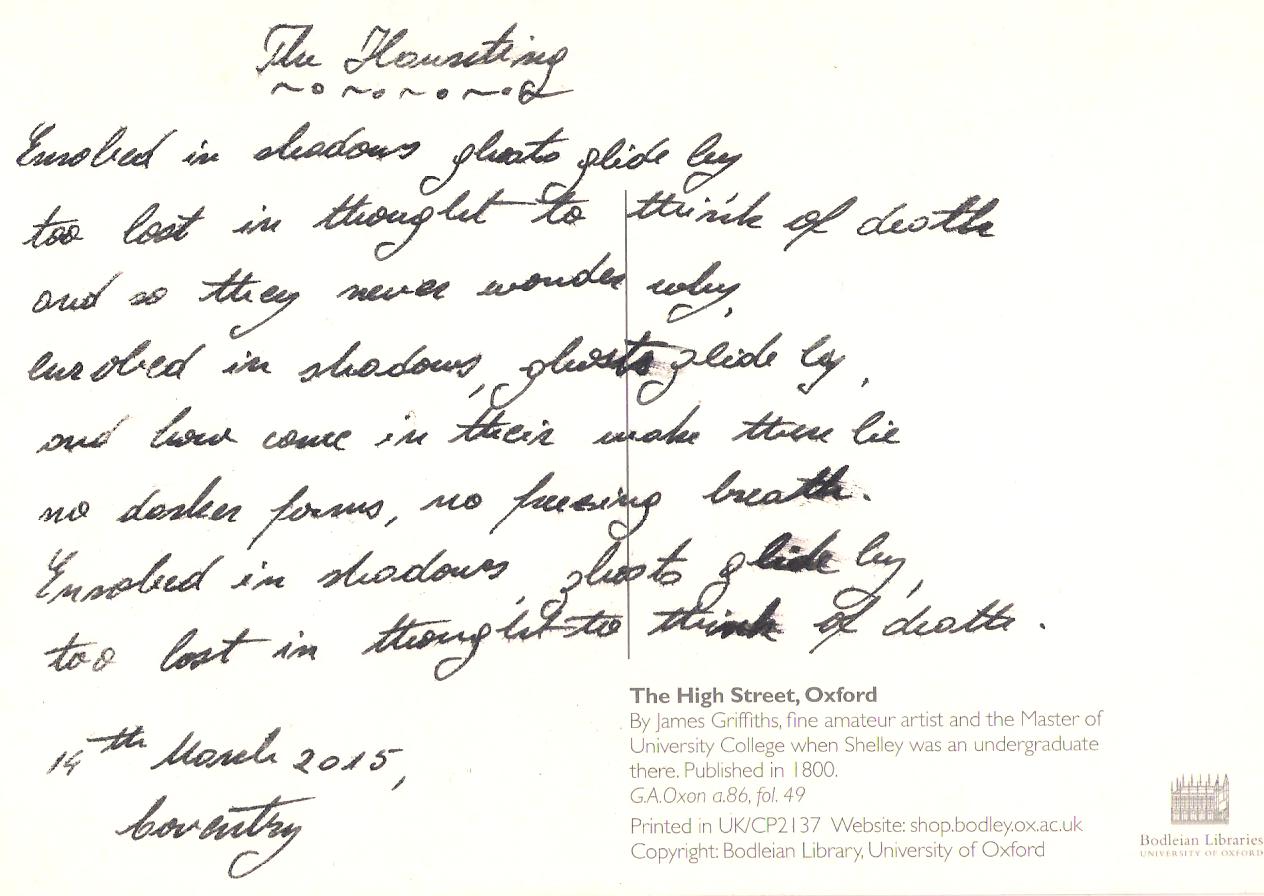 The Haunting
Enrobed in shadows ghosts glide by
too lost in thought to think of death
and so they never wonder why,
enrobed in shadows, ghosts glide by,
and how come in their wake there lie
no darker forms, no freezing breath.
Enrobed in shadows, ghosts glide by,
too lost in thought to think of death.
14th March 2015,
Coventry
The High Street, Oxford
By James Griffiths, fine amateur artist and the Master of
University College when Shelley was an undergraduate
there. Published in 1800.
G.A.Oxon a.86, fol. 49
Printed in UK/CP2137 Website: shop.bodley.ox.ac.uk
Copyright: Bodleian Library, University of Oxford
Bodleian Libraries
UNIVERSITY OF OXFORD